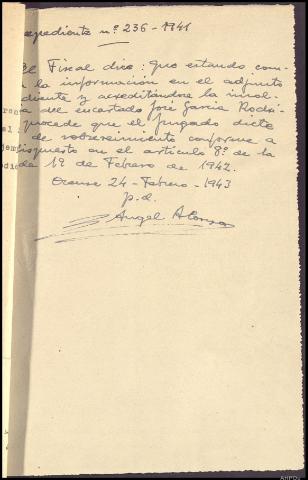 expediente n.º 236-1941
El Fiscal dice: que estando com-
la información en el adjunto
diente y acreditándose la insol-
a del encartado José García Rodrí-
procede que el Juzgado dicte
de sobreseimiento conforme a
ispuesto en el artículo 8º de la
de 19 de Febrero de 1942.
Orense 24-Febrero-1943
p.d.
Angel Alonso